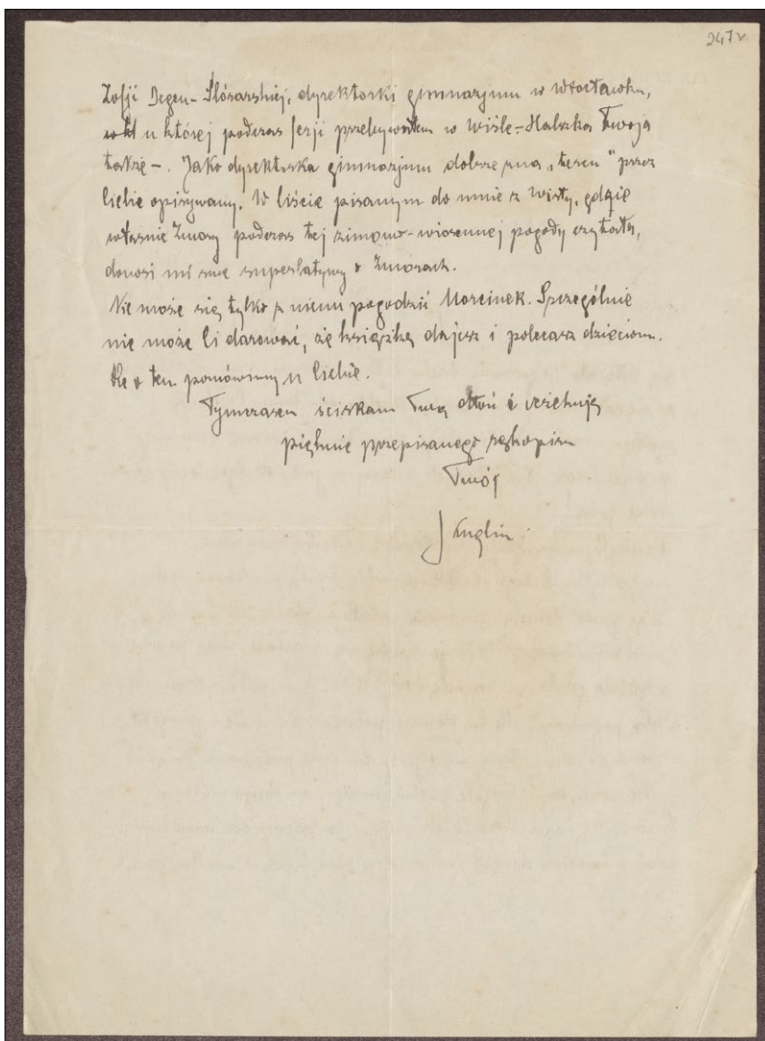 247v
Zofji Degen-Ślósarskiej, dyrektorki gimnazjum w Włocławku,
u której podczas feryj przebywałem w Wiśle - Halszka Twoja
także -. Jako dyrektorka gimnazjum dobrze zna „teren" przez
Ciebie opisywany. W liście pisanym do mnie z Wisły, gdzie
właśnie Zmory podczas tej zimowo-wiosennej pogody czytała,
donosi mi swe superlatywy o Zmorach.
Nie może się tylko z niemi pogodzić Morcinek. Szczególnie
nie może Ci darować, że książkę dajesz i polecasz dzieciom.
Ale o tem pomówimy u Ciebie.
Tymczasem ściskam Twą dłoń i oczekuję
pięknie przepisanego rękopisu
Twój
J Kuglin